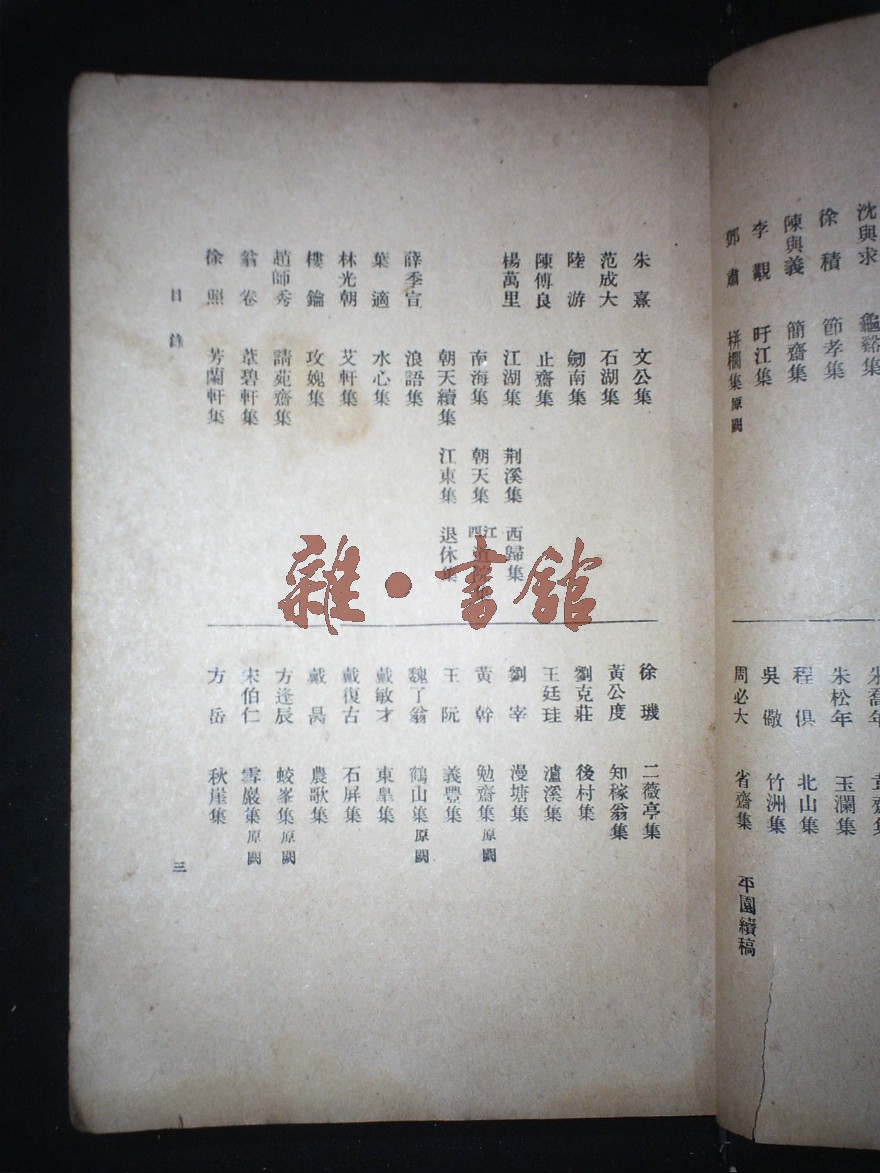 沈與求 龜谿集
徐積 節孝集
陳與義 簡齋集
李覯 旴江集
鄧肅 栟櫚集原闕
朱松年 玉瀾集
程俱 北山集
吳儆 竹洲集
周必大 省齋集 平園續稿
朱熹 文公集
范成大 石湖集
陸游 劒南集
陳傅良 止齋集
楊萬里 江湖集 荆溪集 西歸集
南海集 朝天集
朝天續集 江東集 退休集
薛季宣 浪語集
葉適 水心集
林光朝 艾軒集
樓鑰 攻媿集
趙師秀 請苑齋集
翁卷 葦碧軒集
徐照 芳蘭軒集
徐璣 二薇亭集
黃公度 知稼翁集
劉克莊 後村集
王廷珪 瀘溪集
劉宰 漫塘集
黃幹 勉齋集原闕
王阮 義豐集
魏了翁 鶴山集原闕
戴敏才 東臯集
戴復古 石屏集
戴昺 農歌集
方逢辰 蛟峯集原闕
宋伯仁 雪巖集原闕
方岳 秋崖集
目錄
三
雜·書館